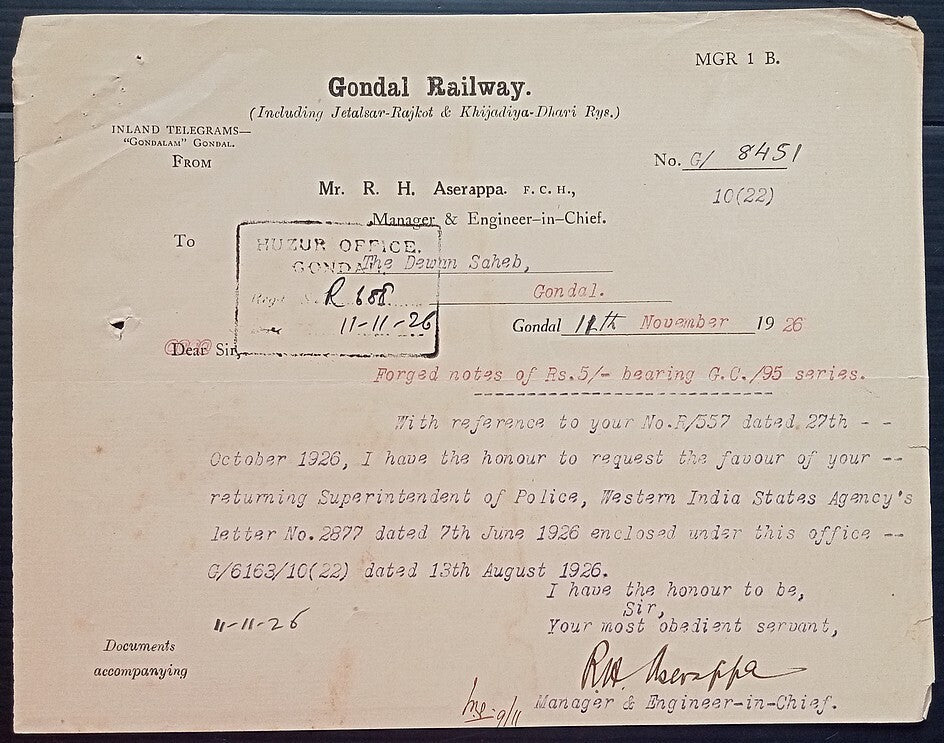 MGR 1 B.
Gondal Railway.
(Including Jetalsar-Rajkot & Khijadiya-Dhari Rys.)
INLAND TELEGRAMS—
"GONDALAM" GONDAL.
FROM
No. G/ 8451
10(22)
Mr. R. H. Aserappa. F. C. H.,
Manager & Engineer-in-Chief.
To
HUZUR OFFICE.
GONDAL
The Dewan Saheb,
Regd. R 688
Gondal.
11-11-26
Gondal 11th November 1926
Dear Sir,
Forged notes of Rs.5/- bearing G.C./95 series.
With reference to your No.R/557 dated 27th - -
October 1926, I have the honour to request the favour of your --
returning Superintendent of Police, Western India States Agency's
letter No.2877 dated 7th June 1926 enclosed under this office --
G/6163/10(22) dated 13th August 1926.
I have the honour to be,
Sir,
Your most obedient servant,
11-11-26
Documents
accompanying
R.H. Aserappa
9/11
Manager & Engineer-in-Chief.